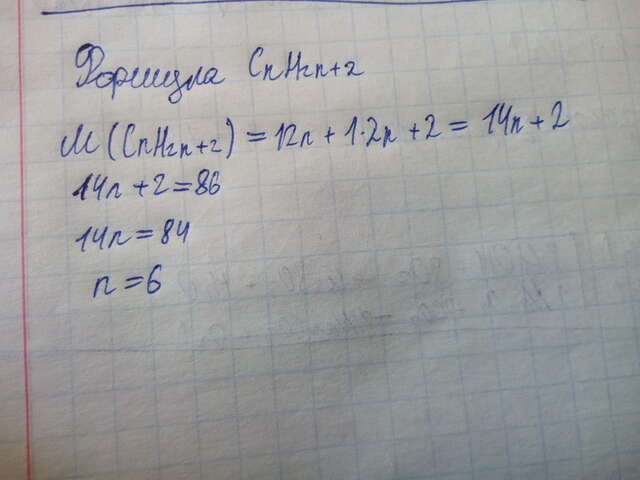 Формула CnH2n+2
M(CnH2n+2) = 12n + 1·2n + 2 = 14n + 2
14n + 2 = 86
14n = 84
n = 6